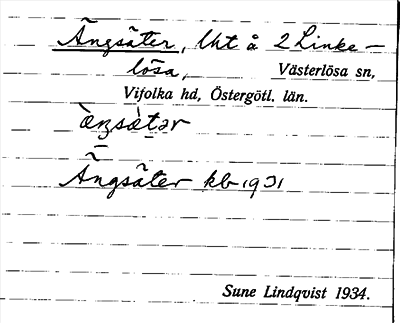 Ängsäter, lht å 2 Linke-
lösa, Västerlösa sn,
Vifolka hd, Östergötl. län.
Ängsäter kb 1931
Sune Lindqvist 1934.